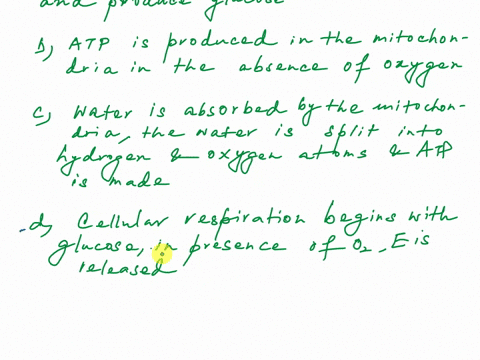 and produce glucose
b) ATP is produced in the mitochon-
dria in the absence of oxygen
c) Water is absorbed by the mitochon-
dria, the water is split into
hydrogen & oxygen atoms & ATP
is made
d) Cellular respiration begins with
glucose, in presence of O₂, E is
released